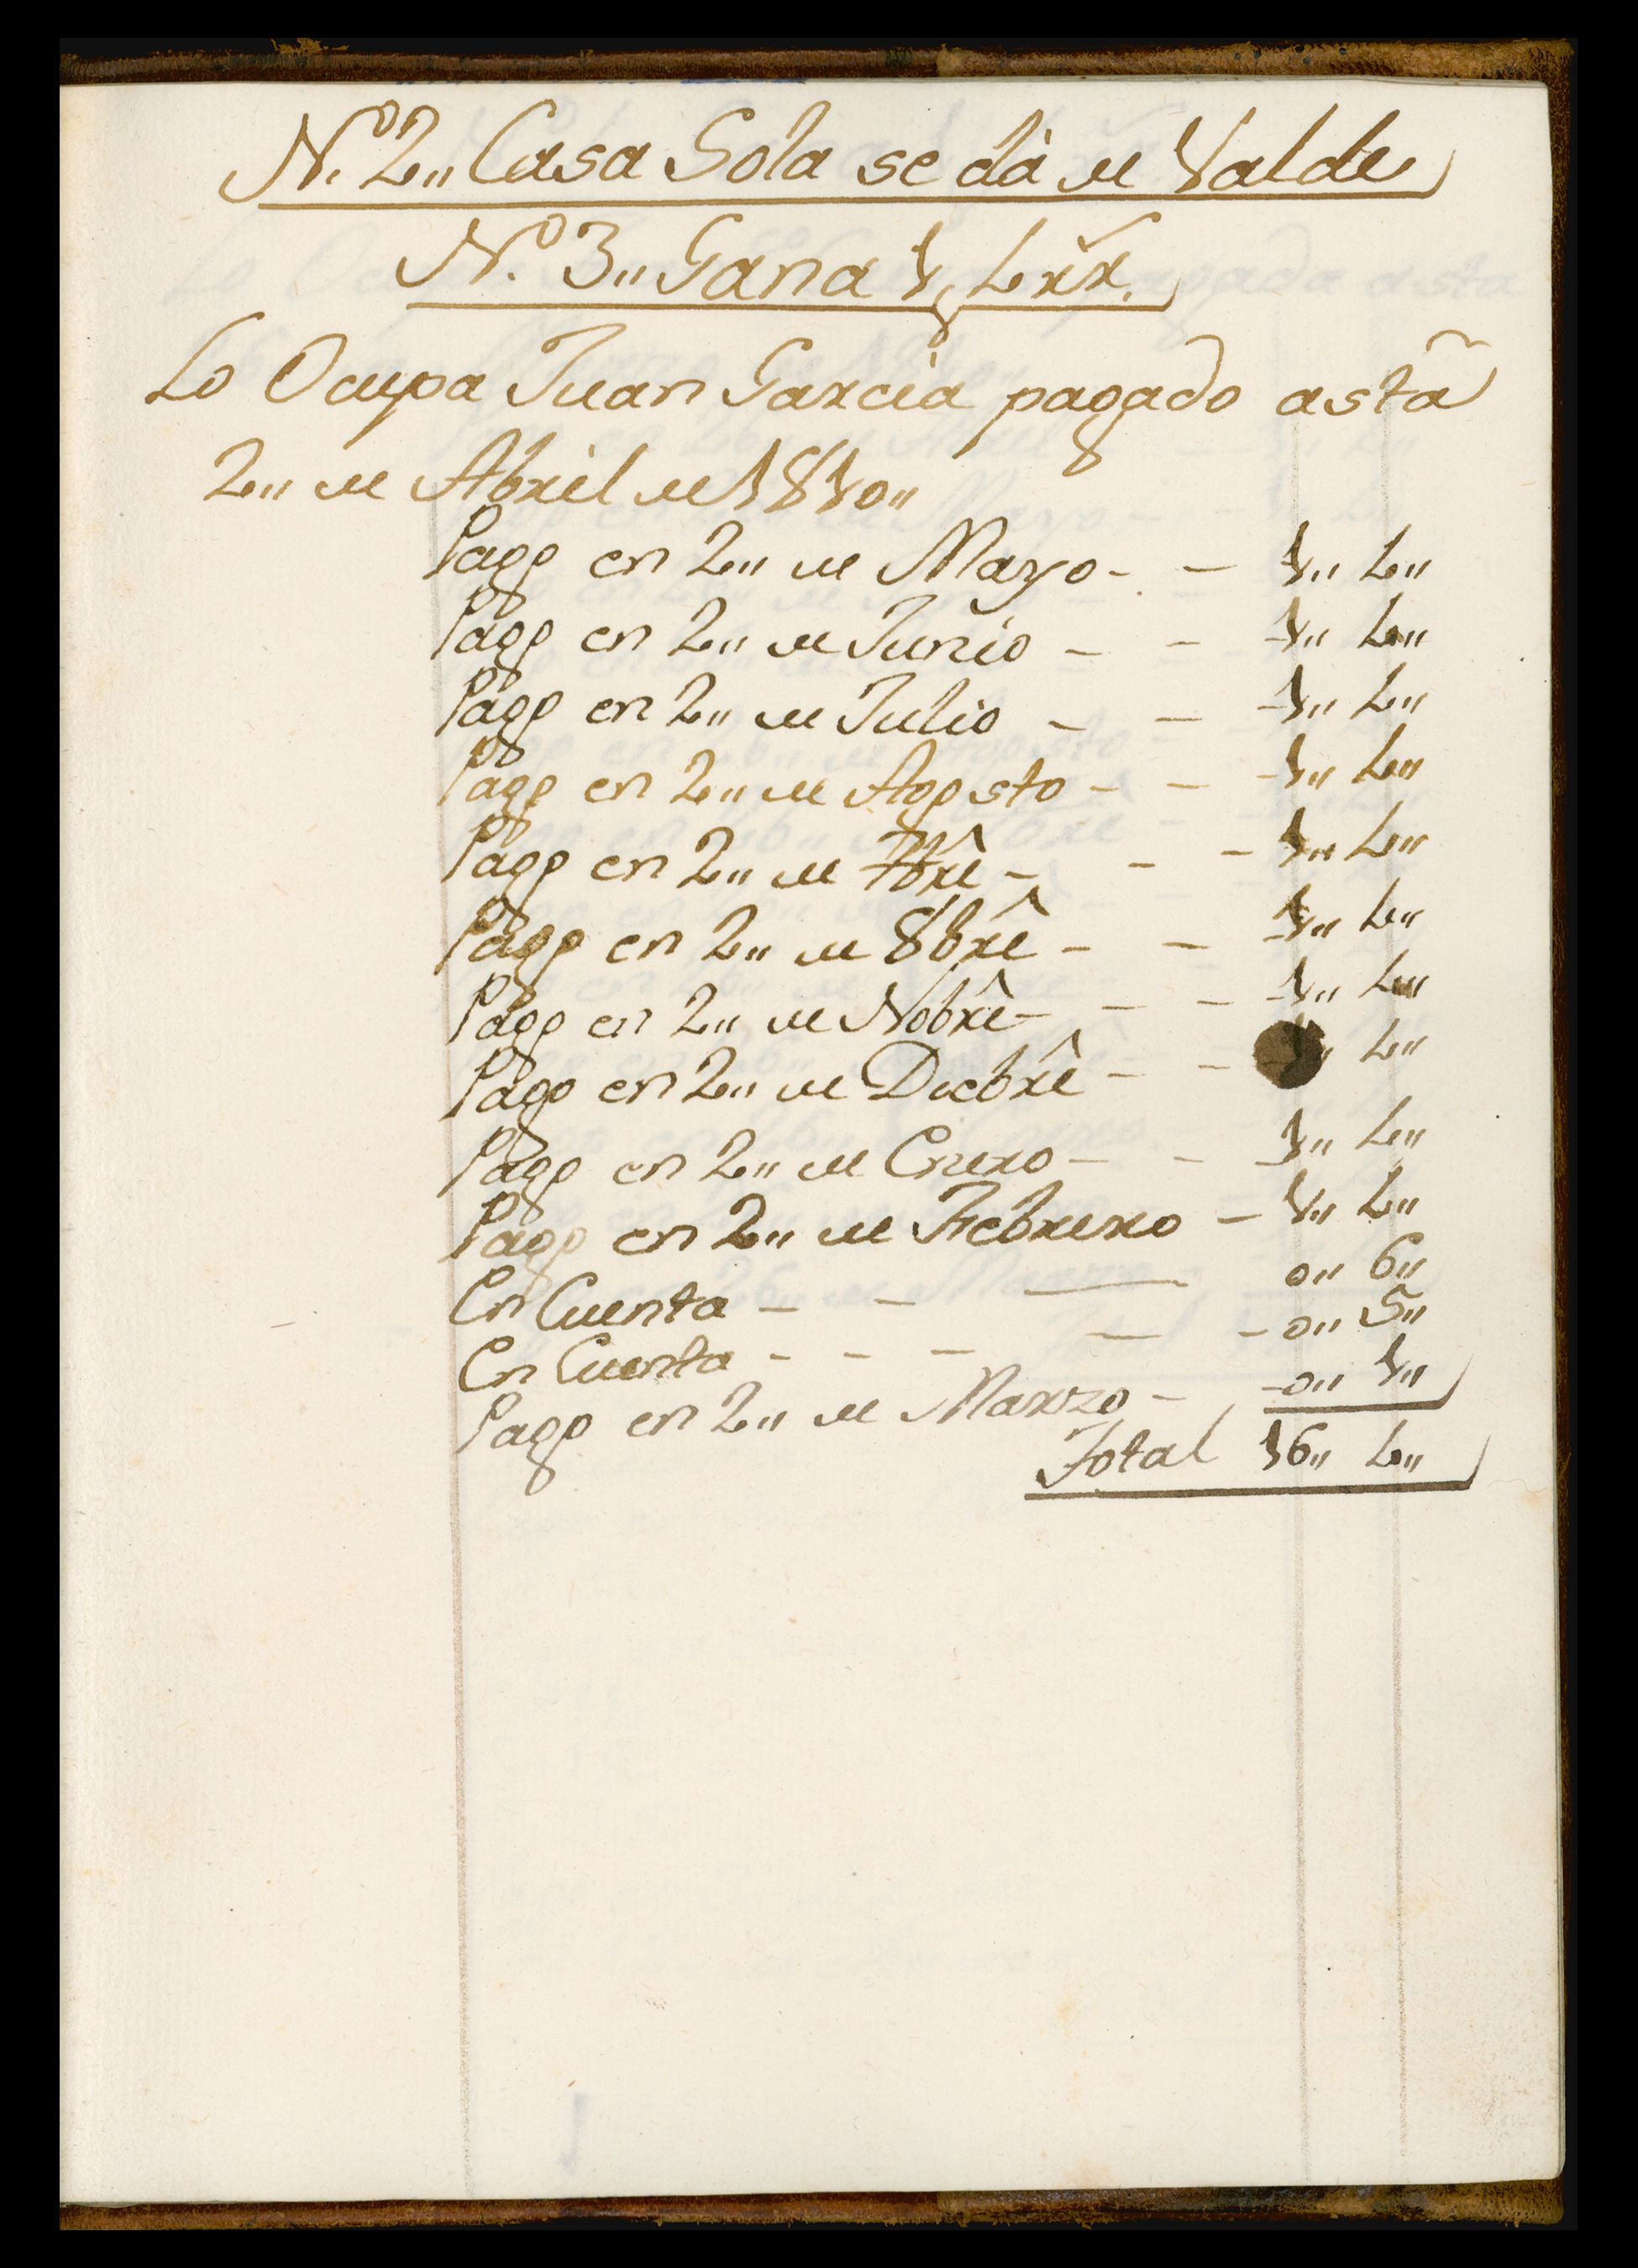 N.º 2,, Casa Sola se dá de Valde
N.º 3,, Gana 1, 4 rr.
Lo Ocupa Juan Garcia pagado astã
2,, de Abril de 1810,,
Pago en 2,, de Mayo - - 1,, 4,,
Pago en 2,, de Junio - - 1,, 4,,
Pago en 2,, de Julio - - 1,, 4,,
Pago en 2,, de Agosto - - 1,, 4,,
Pago en 2,, de 7brê - - - 1,, 4,,
Pago en 2,, de 8brê - - 1,, 4,,
Pago en 2,, de Nobrê - - - 1,, 4,,
Pago en 2,, de Dicbrê - - 1,, 4,,
Pago en 2,, de Enero - - 1,, 4,,
Pago en 2,, de Febrero - 1,, 4,,
En Cuenta - - — 0,, 6,,
En Cuenta - - - — - 0,, 5,,
Pago en 2,, de Marzo - - 0,, 1,,
Total 16,, 4,,